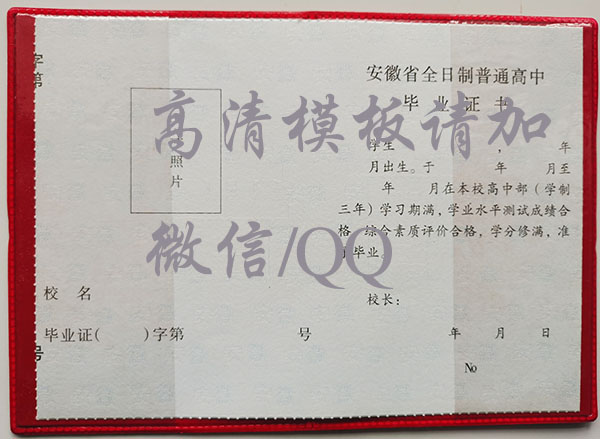 字
第
安徽省全日制普通高中
毕业证书
高清模板请加
学生 , 年
月出生。于 年 月至
年 月在本校高中部(学制
三年)学习期满,学业水平测试成绩合
格,综合素质评价合格,学分修满,准
毕业。
照
片
微信/QQ
校 名
校长:
毕业证( )字第 号
年 月 日
号
No